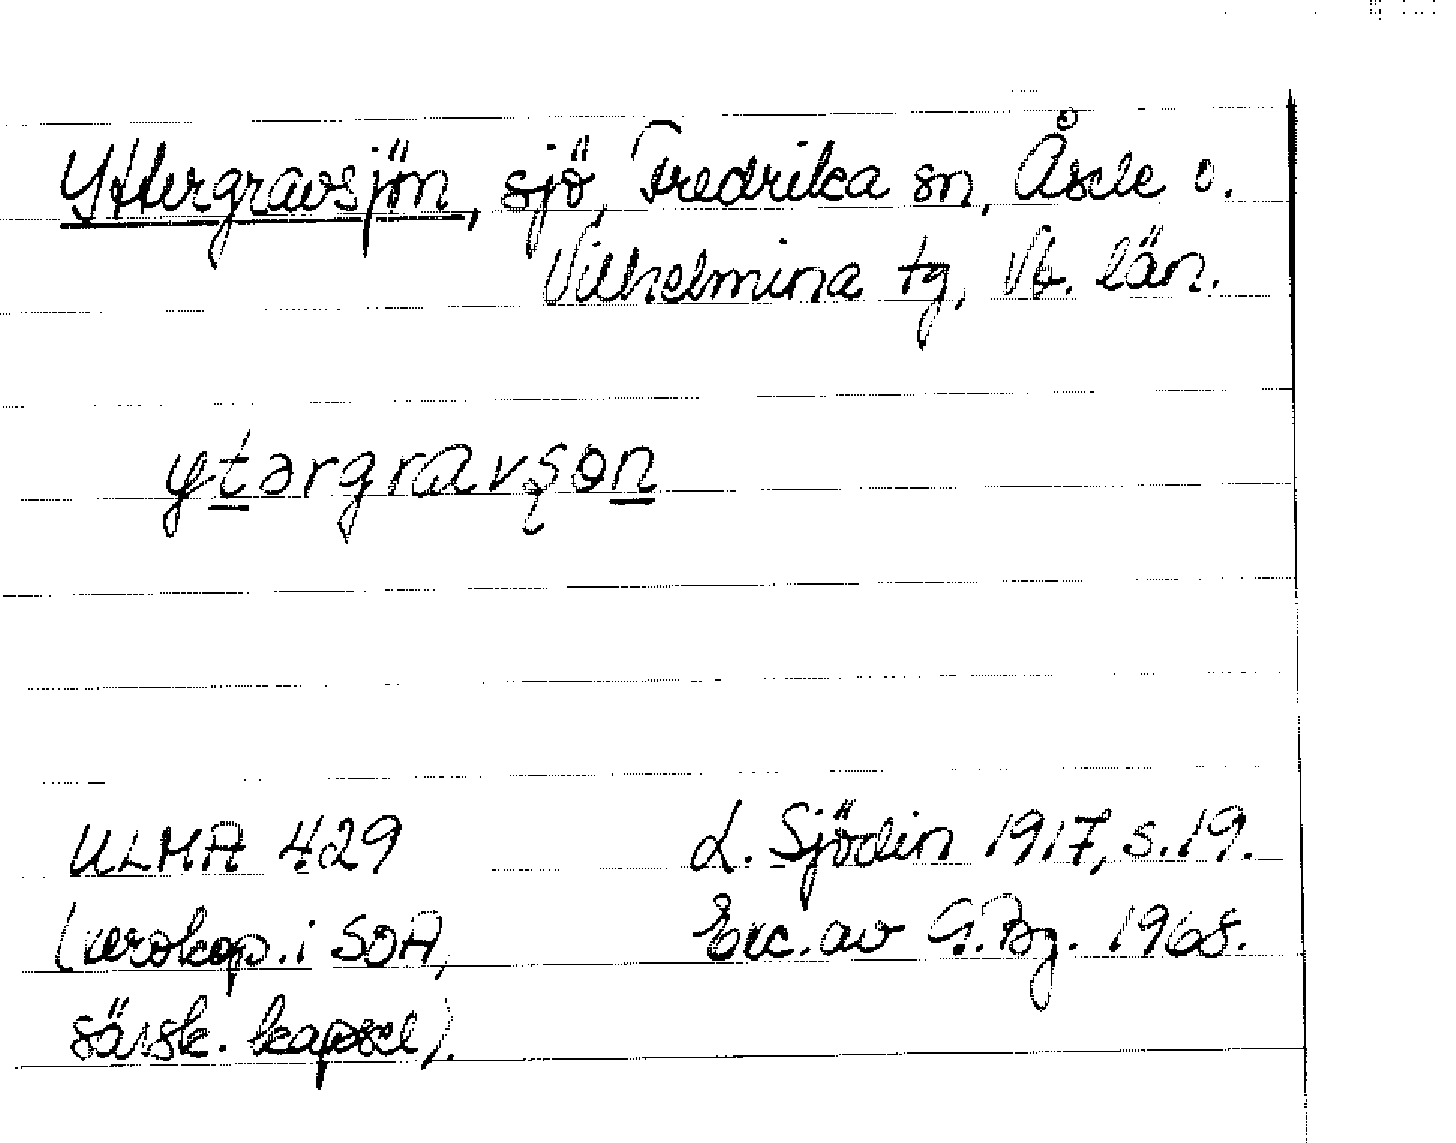 Yttergravsjön, sjö, Fredrika sn, Åsele o.
Vilhelmina tg, Vb. län.
ytərgravʂɵn
ULMA 429
L. Sjödin 1917, s. 19.
(xerokop. i SOA,
Exc. av G. Bg. 1968.
särsk. kapsel).